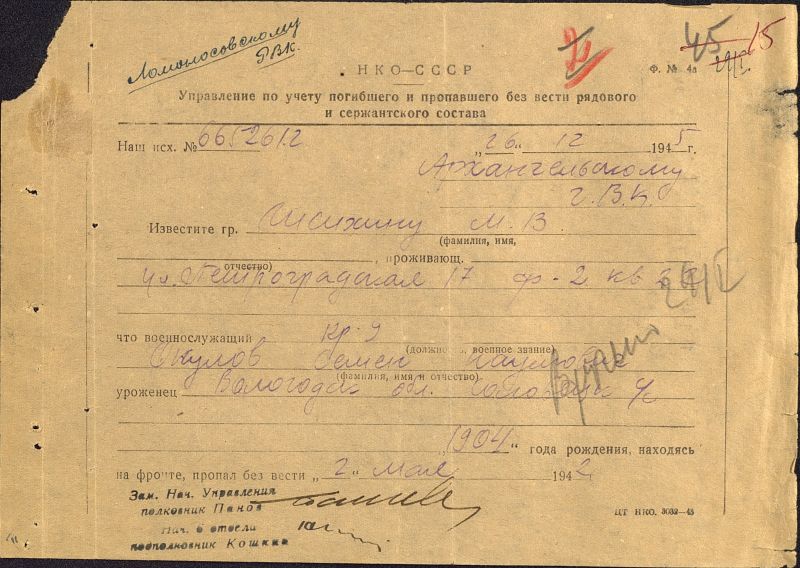 Ломоносовскому
РВК.
45 15
НКО—СССР
Ф. № 4а
Управление по учету погибшего и пропавшего без вести рядового
и сержантского состава
Наш исх. № 665261.2 „26“ 12 1945 г.
Архангельскому
г.В.К.
Известите гр. М. В.
(фамилия, имя,
отчество) , проживающ.
ул. Ленинградская 17 ф-2 кв
что военнослужащий кр-ц
(должность, военное звание)
Окулов Семен
(фамилия, имя и отчество)
уроженец Вологодск обл.
„1904“ года рождения, находясь
на фронте, пропал без вести „2“ мая 1942
Зам. Нач. Управления
полковник Панов
Нач. 6 отдела
подполковник Кошкин
ЦТ НКО. 3032—45